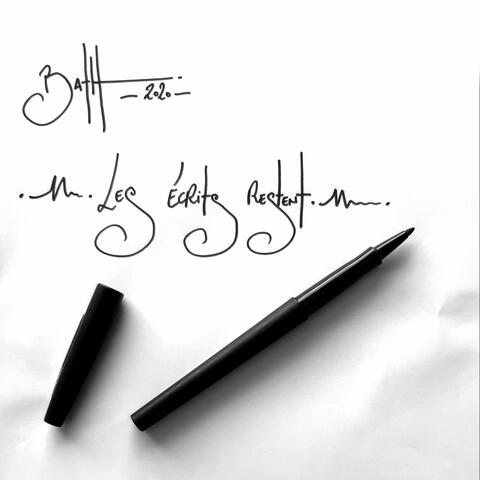 Batt
— 2020 —
Les écrits restent.